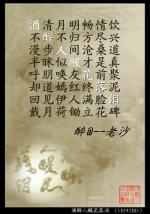 酒清月明畅情饮
不醉不归方尽兴
漫步人间沧桑道
半眯似醒才是真
呼朋唤友花前聚
却道嫣红终落泥
回见伊人满脸泪
戴月荷锄立花碑
醉@--老沙
酒醉人醒花落泪